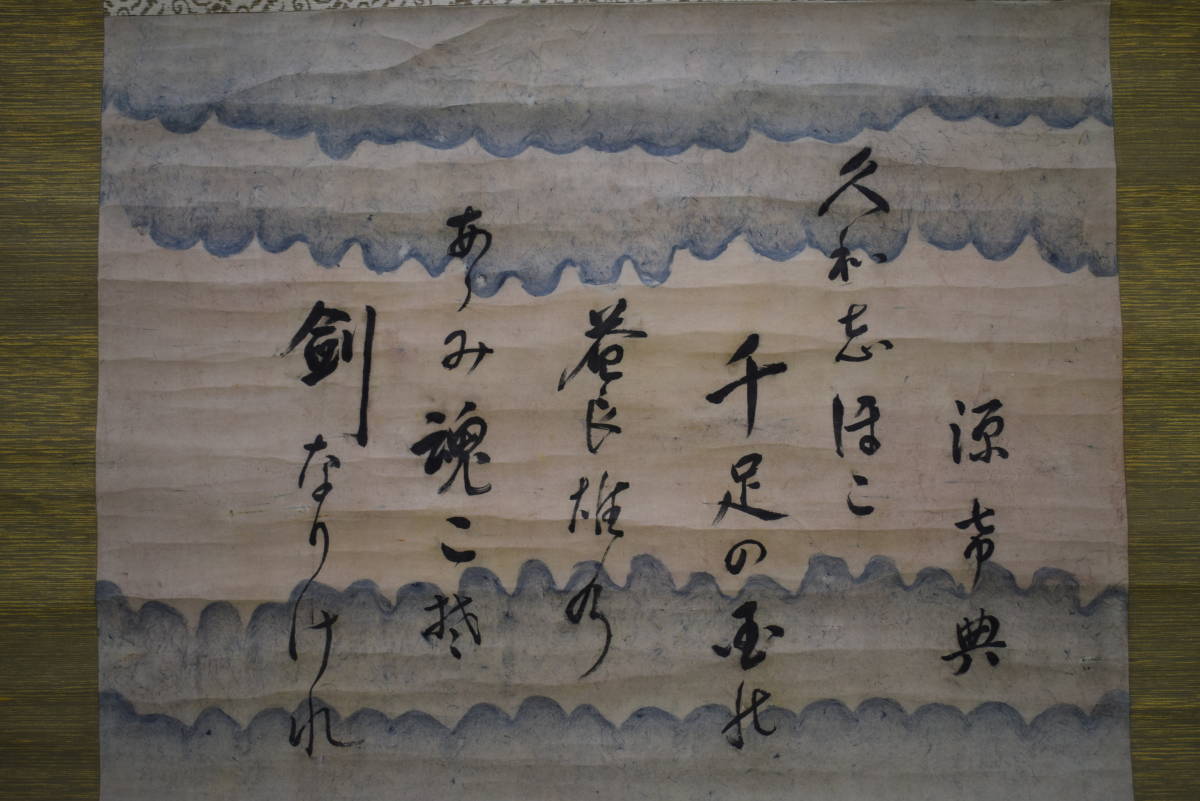 源常典
久和志ほこ
千足の国能
益良雄乃
あらみ魂こ楚
剣なりけれ